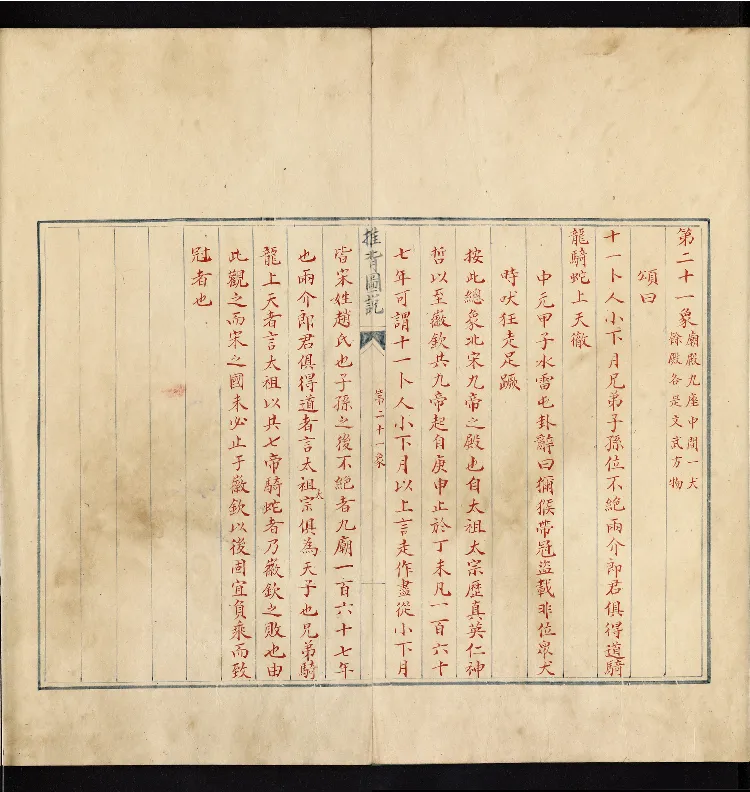 第二十一象 廟殿九座中間一犬
餘殿各是文武方物
頌曰
十一卜人小下月兄弟子孫位不絕兩介郎君俱得道騎
龍騎蛇上天徹
中元甲子水雷屯卦辭曰獼猴帶冠盜載非位眾犬
時吠狂走足蹶
按此總象北宋九帝之殿也自太祖太宗歷真英仁神
哲以至徽欽共九帝起自庚申止於丁未凡一百六十
七年可謂十一卜人小下月以上言走作盡從小下月
推背圖說
第二十一象
皆宋姓趙氏也子孫之後不絕者九廟一百六十七年
也兩介郎君俱得道者言太祖太宗俱為天子也兄弟騎
龍上天者言太祖以其七帝騎蛇者乃徽欽之敗也由
此觀之而宋之國未必止于徽欽以後固宜負乘而致
冠者也